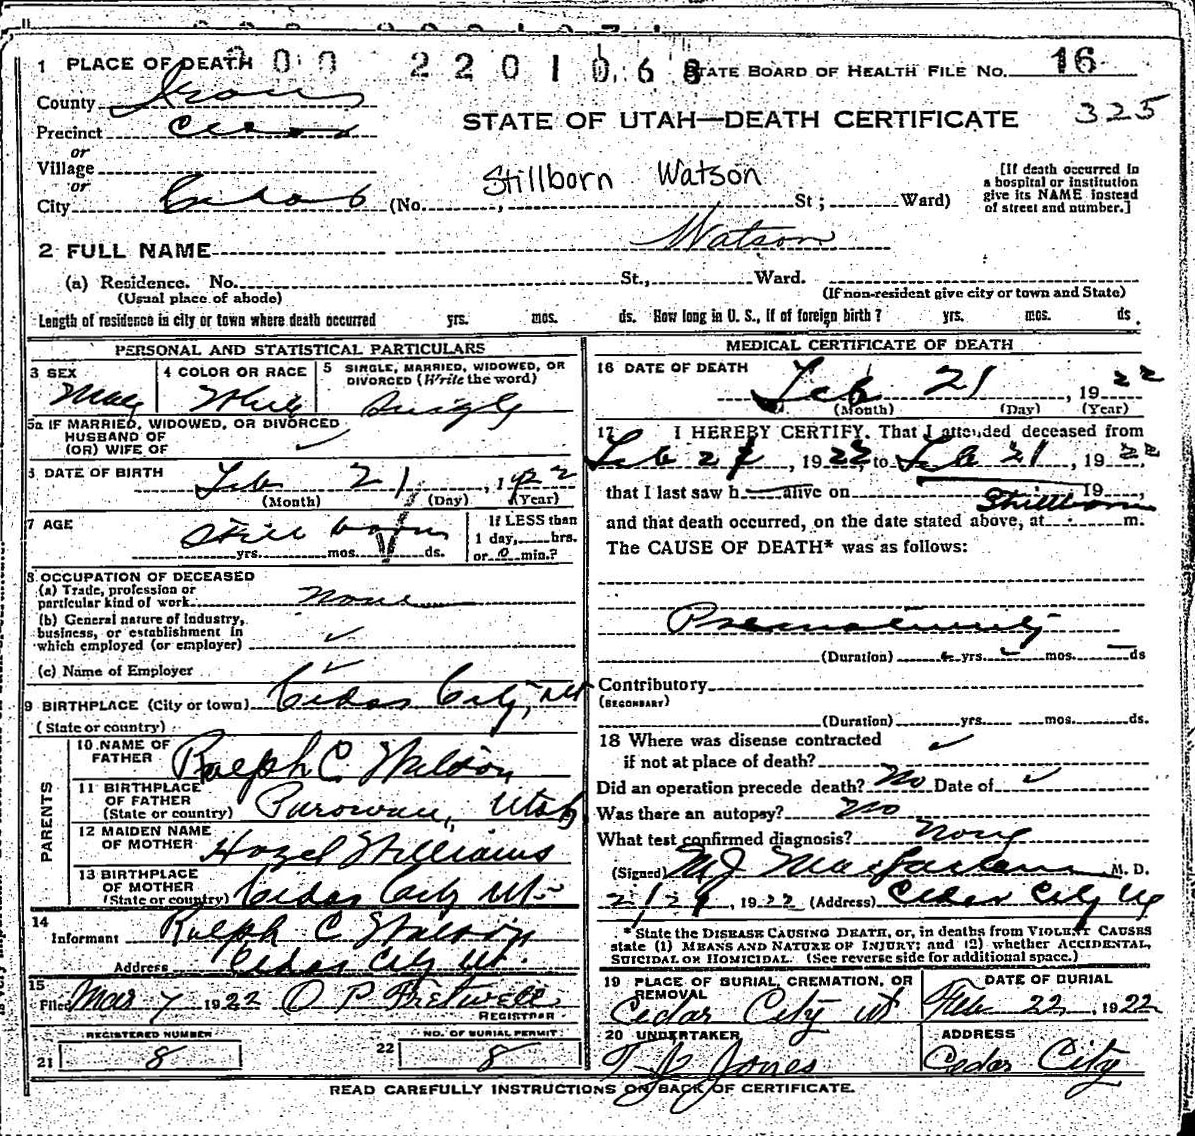 1 PLACE OF DEATH 00 2201068 STATE BOARD OF HEALTH FILE NO. 16
County Iron
325
STATE OF UTAH—DEATH CERTIFICATE
Precinct Cedar
or
Village
or
City Cedar (No. , St ; Ward)
Stillborn Watson
[If death occurred in
a hospital or institution
give its NAME instead
of street and number.]
2 FULL NAME Watson
(a) Residence. No. St., Ward.
(Usual place of abode) (If non-resident give city or town and State)
Length of residence in city or town where death occurred yrs. mos. ds. How long in U. S., if of foreign birth ? yrs. mos. ds.
PERSONAL AND STATISTICAL PARTICULARS
3 SEX 4 COLOR OR RACE 5 SINGLE, MARRIED, WIDOWED, OR
DIVORCED (Write the word)
White Single
5a IF MARRIED, WIDOWED, OR DIVORCED
HUSBAND OF
(OR) WIFE OF
6 DATE OF BIRTH Feb 21, 1922
(Month) (Day) (Year)
7 AGE Still born
yrs. mos. ds.
If LESS than
1 day, hrs.
or 0 min.?
8 OCCUPATION OF DECEASED
(a) Trade, profession or
particular kind of work None
(b) General nature of Industry,
business, or establishment in
which employed (or employer)
(c) Name of Employer
9 BIRTHPLACE (City or town) Cedar City, Ut
(State or country)
PARENTS
10 NAME OF
FATHER Ralph C Watson
11 BIRTHPLACE
OF FATHER
(State or country) Parowan, Utah
12 MAIDEN NAME
OF MOTHER Hazel Williams
13 BIRTHPLACE
OF MOTHER
(State or country) Cedar City Ut.
14
Informant Ralph C Watson
Address Cedar City Ut.
15
Filed Mar 7 1922 O P Fretwell
REGISTRAR
REGISTERED NUMBER NO. OF BURIAL PERMIT
21 8 22 8
MEDICAL CERTIFICATE OF DEATH
16 DATE OF DEATH
Feb 21, 1922
(Month) (Day) (Year)
17 I HEREBY CERTIFY, That I attended deceased from
Feb 21, 1922 to Feb 21, 1922
that I last saw h alive on 19 ,
Stillborn
and that death occurred, on the date stated above, at m.
The CAUSE OF DEATH* was as follows:
Prematurity
(Duration) yrs. mos. ds
Contributory
(SECONDARY)
(Duration) yrs. mos. ds.
18 Where was disease contracted
if not at place of death?
Did an operation precede death? No Date of
Was there an autopsy? No
What test confirmed diagnosis? None
(Signed) M J Macfarlane M. D.
2/21, 1922 (Address) Cedar City Ut
*State the DISEASE CAUSING DEATH, or, in deaths from VIOLENT CAUSES
state (1) MEANS AND NATURE OF INJURY; and (2) whether ACCIDENTAL,
SUICIDAL OR HOMICIDAL. (See reverse side for additional space.)
19 PLACE OF BURIAL, CREMATION, OR
REMOVAL
Cedar City Ut
DATE OF BURIAL
Feb 22, 1922
20 UNDERTAKER
T J Jones
ADDRESS
Cedar City
READ CAREFULLY INSTRUCTIONS ON BACK OF CERTIFICATE.